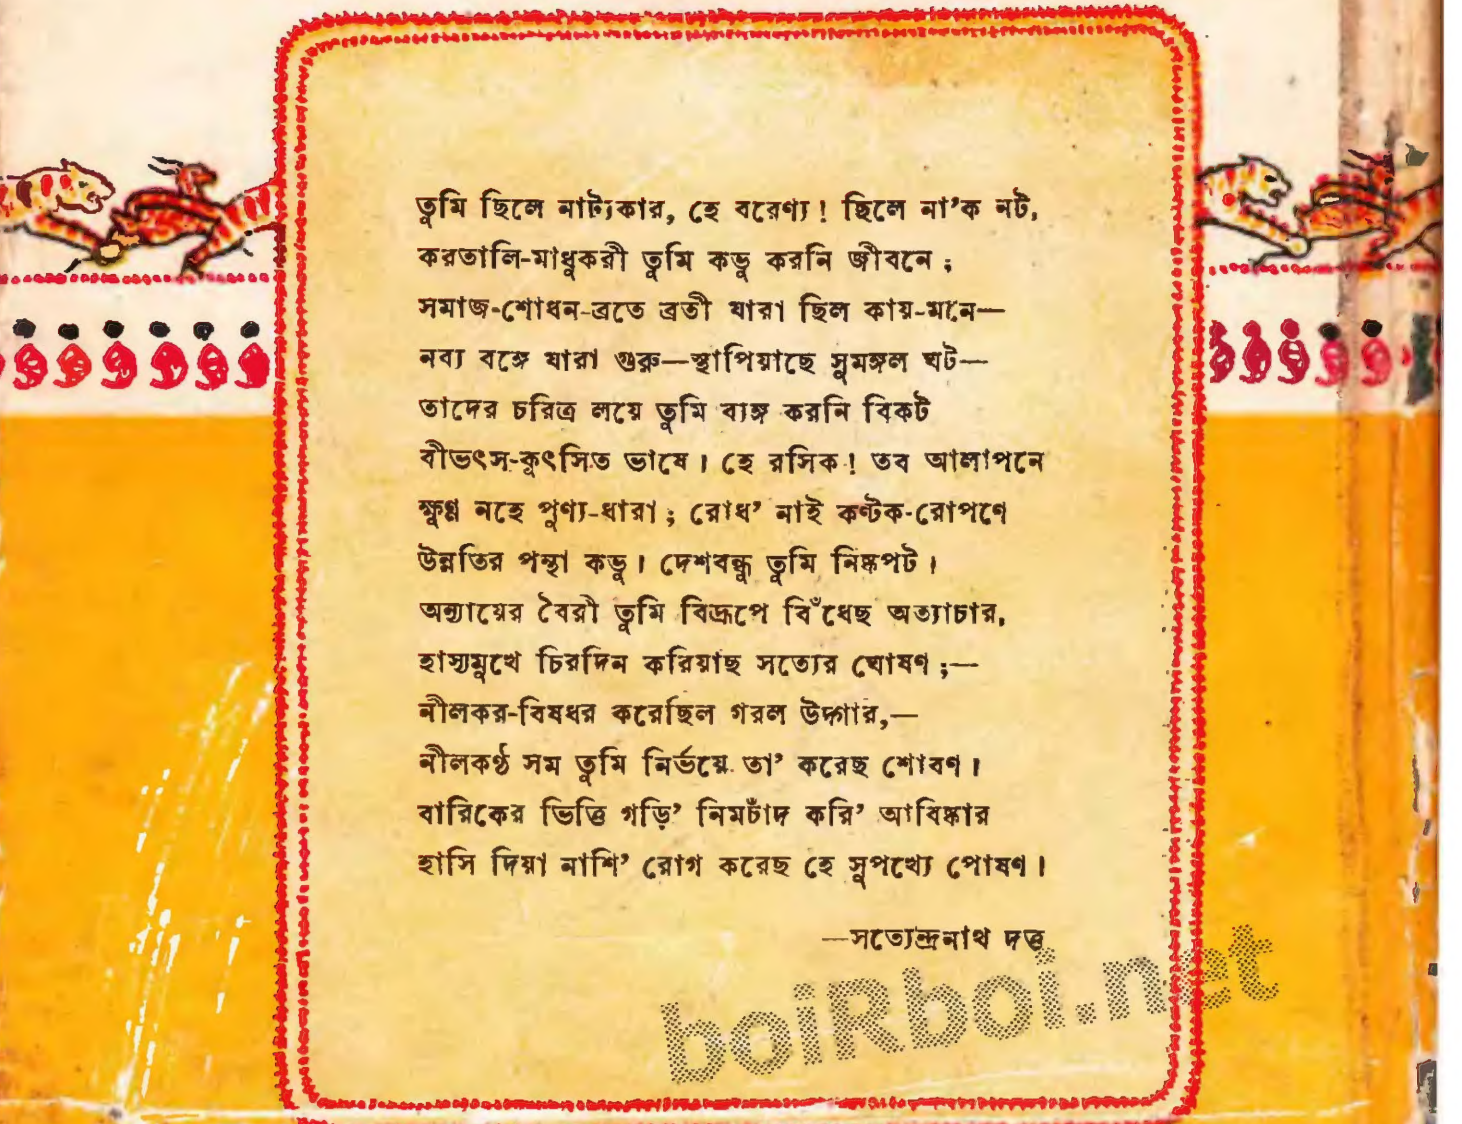 তুমি ছিলে নাট্যকার, হে বরেণ্য! ছিলে না’ক নট,
করতালি-মাধুকরী তুমি কভু করনি জীবনে;
সমাজ-শোধন-ব্রতে ব্রতী যারা ছিল কায়-মনে—
নব্য বঙ্গে যারা গুরু—স্থাপিয়াছে সুমঙ্গল ঘট—
তাদের চরিত্র লয়ে তুমি ব্যঙ্গ করনি বিকট
বীভৎস-কুৎসিত ভাষে। হে রসিক! তব আলাপনে
ক্ষুণ্ণ নহে পুণ্য-ধারা; রোধ’ নাই কণ্টক-রোপণে
উন্নতির পন্থা কভু। দেশবন্ধু তুমি নিষ্কপট।
অন্যায়ের বৈরী তুমি বিদ্রূপে বিঁধেছ অত্যাচার,
হাস্যমুখে চিরদিন করিয়াছ সত্যের ঘোষণ;—
নীলকর-বিষধর করেছিল গরল উদ্গার,—
নীলকণ্ঠ সম তুমি নির্ভয়ে তা’ করেছ শোষণ।
বারিকের ভিত্তি গড়ি’ নিমচাঁদ করি’ আবিষ্কার
হাসি দিয়া নাশি’ রোগ করেছ হে সুপথ্যে পোষণ।
—সত্যেন্দ্রনাথ দত্ত
boiRboi.net